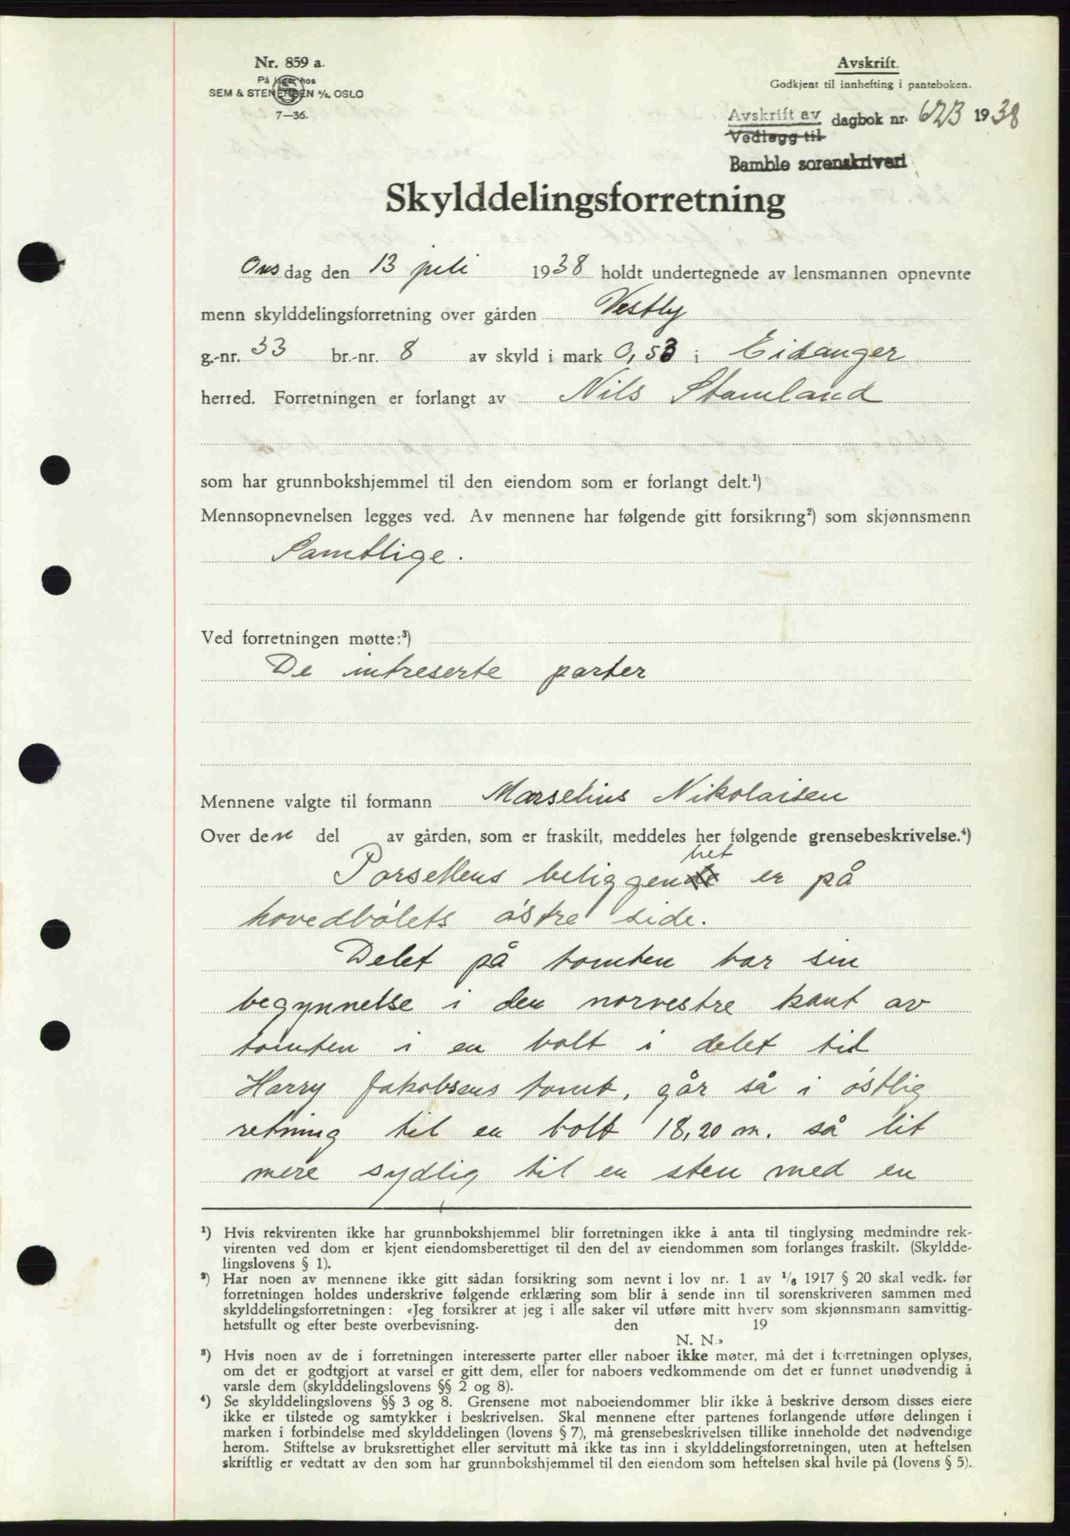 Nr. 859 a.
På lager hos
SEM & STENERSEN A/S, OSLO
7—36.
Avskrift.
Godkjent til innhefting i panteboken.
Avskrift av
Vedlegg til
dagbok nr. 623 1938
Bamble sorenskriveri
Skylddelingsforretning
Onsdag den 13 juli 1938 holdt undertegnede av lensmannen opnevnte
menn skylddelingsforretning over gården Vestby
g.-nr. 33 br.-nr. 8 av skyld i mark 0,53 i Eidanger
herred. Forretningen er forlangt av Nils Stamland
som har grunnbokshjemmel til den eiendom som er forlangt delt.¹)
Mennsopnevnelsen legges ved. Av mennene har følgende gitt forsikring²) som skjønnsmenn
Samtlige.
Ved forretningen møtte:³)
De intreserte parter
Mennene valgte til formann Marselius Nikolaisen
Over den del av gården, som er fraskilt, meddeles her følgende grensebeskrivelse.⁴)
Parsellens beliggenhet er på
hovedbølets østre side.
Delet på tomten har sin
begynnelse i den norvestre kant av
tomten i en bolt i delet til
Harry Jakobsens tomt, går så i østlig
retning til en bolt 18,20 m. så lit
mere sydlig til en sten med en
¹) Hvis rekvirenten ikke har grunnbokshjemmel blir forretningen ikke å anta til tinglysing medmindre rek-
virenten ved dom er kjent eiendomsberettiget til den del av eiendommen som forlanges fraskilt. (Skyldde-
lingslovens § 1).
²) Har noen av mennene ikke gitt sådan forsikring som nevnt i lov nr. 1 av 1/6 1917 § 20 skal vedk. før
forretningen holdes underskrive følgende erklæring som blir å sende inn til sorenskriveren sammen med
skylddelingsforretningen: «Jeg forsikrer at jeg i alle saker vil utføre mitt hverv som skjønnsmann samvittig-
hetsfullt og efter beste overbevisning. den 19
N. N.»
³) Hvis noen av de i forretningen interesserte parter eller naboer ikke møter, må det i forretningen oplyses,
om det er godtgjort at varsel er gitt dem, eller for naboers vedkommende om det er funnet unødvendig å
varsle dem (skylddelingslovens §§ 2 og 8).
⁴) Se skylddelingslovens §§ 3 og 8. Grensene mot naboeiendommer blir ikke å beskrive dersom disses eiere
ikke er tilstede og samtykker i beskrivelsen. Skal mennene efter partenes forlangende utføre delingen i
marken i forbindelse med skylddelingen (lovens § 7), må grensebeskrivelsen tillike inneholde det nødvendige
herom. Stiftelse av bruksrettighet eller servitutt må ikke tas inn i skylddelingsforretningen, uten at heftelsen
skriftlig er vedtatt av den som har grunnbokshjemmel til den eiendom som heftelsen skal hvile på (lovens § 5).